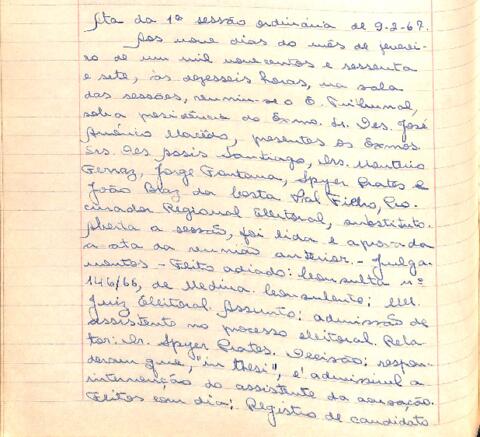 Ata da 1ª sessão ordinária de 9-2-67.
Aos nove dias do mês de feverei-
ro de um mil novecentos e sessenta
e sete, às dezesseis horas, na sala
das sessões, reuniu-se o E. Tribunal,
sob a presidência do Exmo. Sr. Des. José
Américo Macêdo, presentes os Exmos
Srs. Des. Assis Santiago, Drs. Monteiro
Ferraz, Jorge Fontana, Spyer Prates e
João Braz da Costa Val Filho, Pro-
curador Regional Eleitoral, substituto.
Aberta a sessão, foi lida e aprovada
a ata da reunião anterior. - Julga-
mentos - Feito adiado: Consulta nº
146/66, de Medina. Consulente: MM.
Juiz Eleitoral. Assunto: admissão de
assistente no processo eleitoral. Rela-
tor: Dr. Spyer Prates. Decisão: respon-
deram que, "in thesi", é admissível a
intervenção do assistente da acusação.
Feitos com dia: Registro de candidato